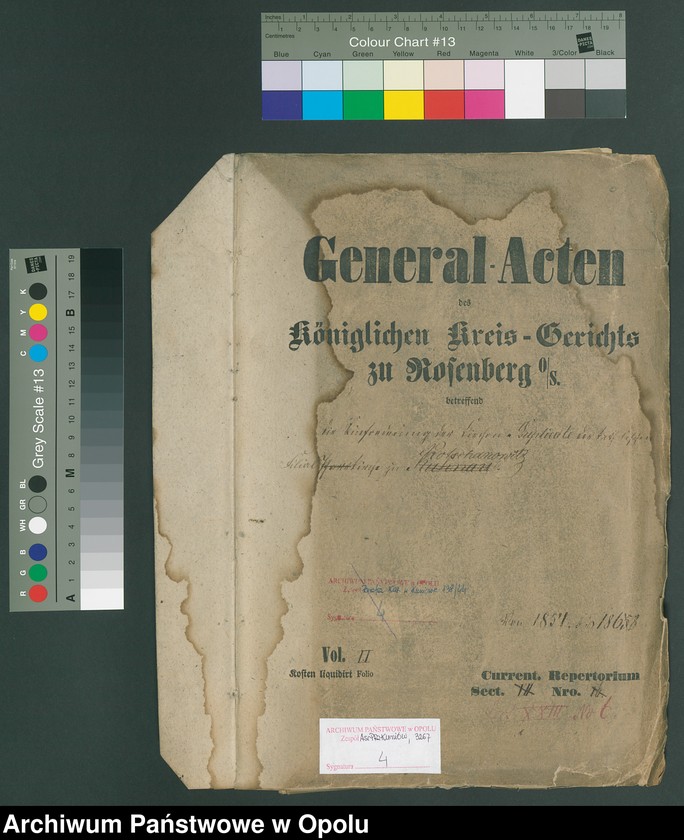 Inches 1 2 3 4 5 6 7 8
Centimetres 1 2 3 4 5 6 7 8 9 10 11 12 13 14 15 16 17 18 19
Colour Chart #13
DANES PICTA
Blue Cyan Green Yellow Red Magenta White 3/Color Black
Grey Scale #13
R G B WH GR BL C M Y K
A 1 2 3 4 5 6 M 8 9 10 11 12 13 14 15 B 17 18 19
General-Acten
des
Königlichen Kreis-Gerichts
zu Rosenberg O/S.
betreffend
die Einforderung der Kirchen-Duplicate der
Filial kirche zu Kotschanowitz
ARCHIWUM PAŃSTWOWE W OPOLU
4
1857 1868
Vol. II
Kosten liquidirt Folio
Current. Repertorium
Sect. Nro.
No 6
ARCHIWUM PAŃSTWOWE w OPOLU
Zespół 3267
Sygnatura 4
Archiwum Państwowe w Opolu